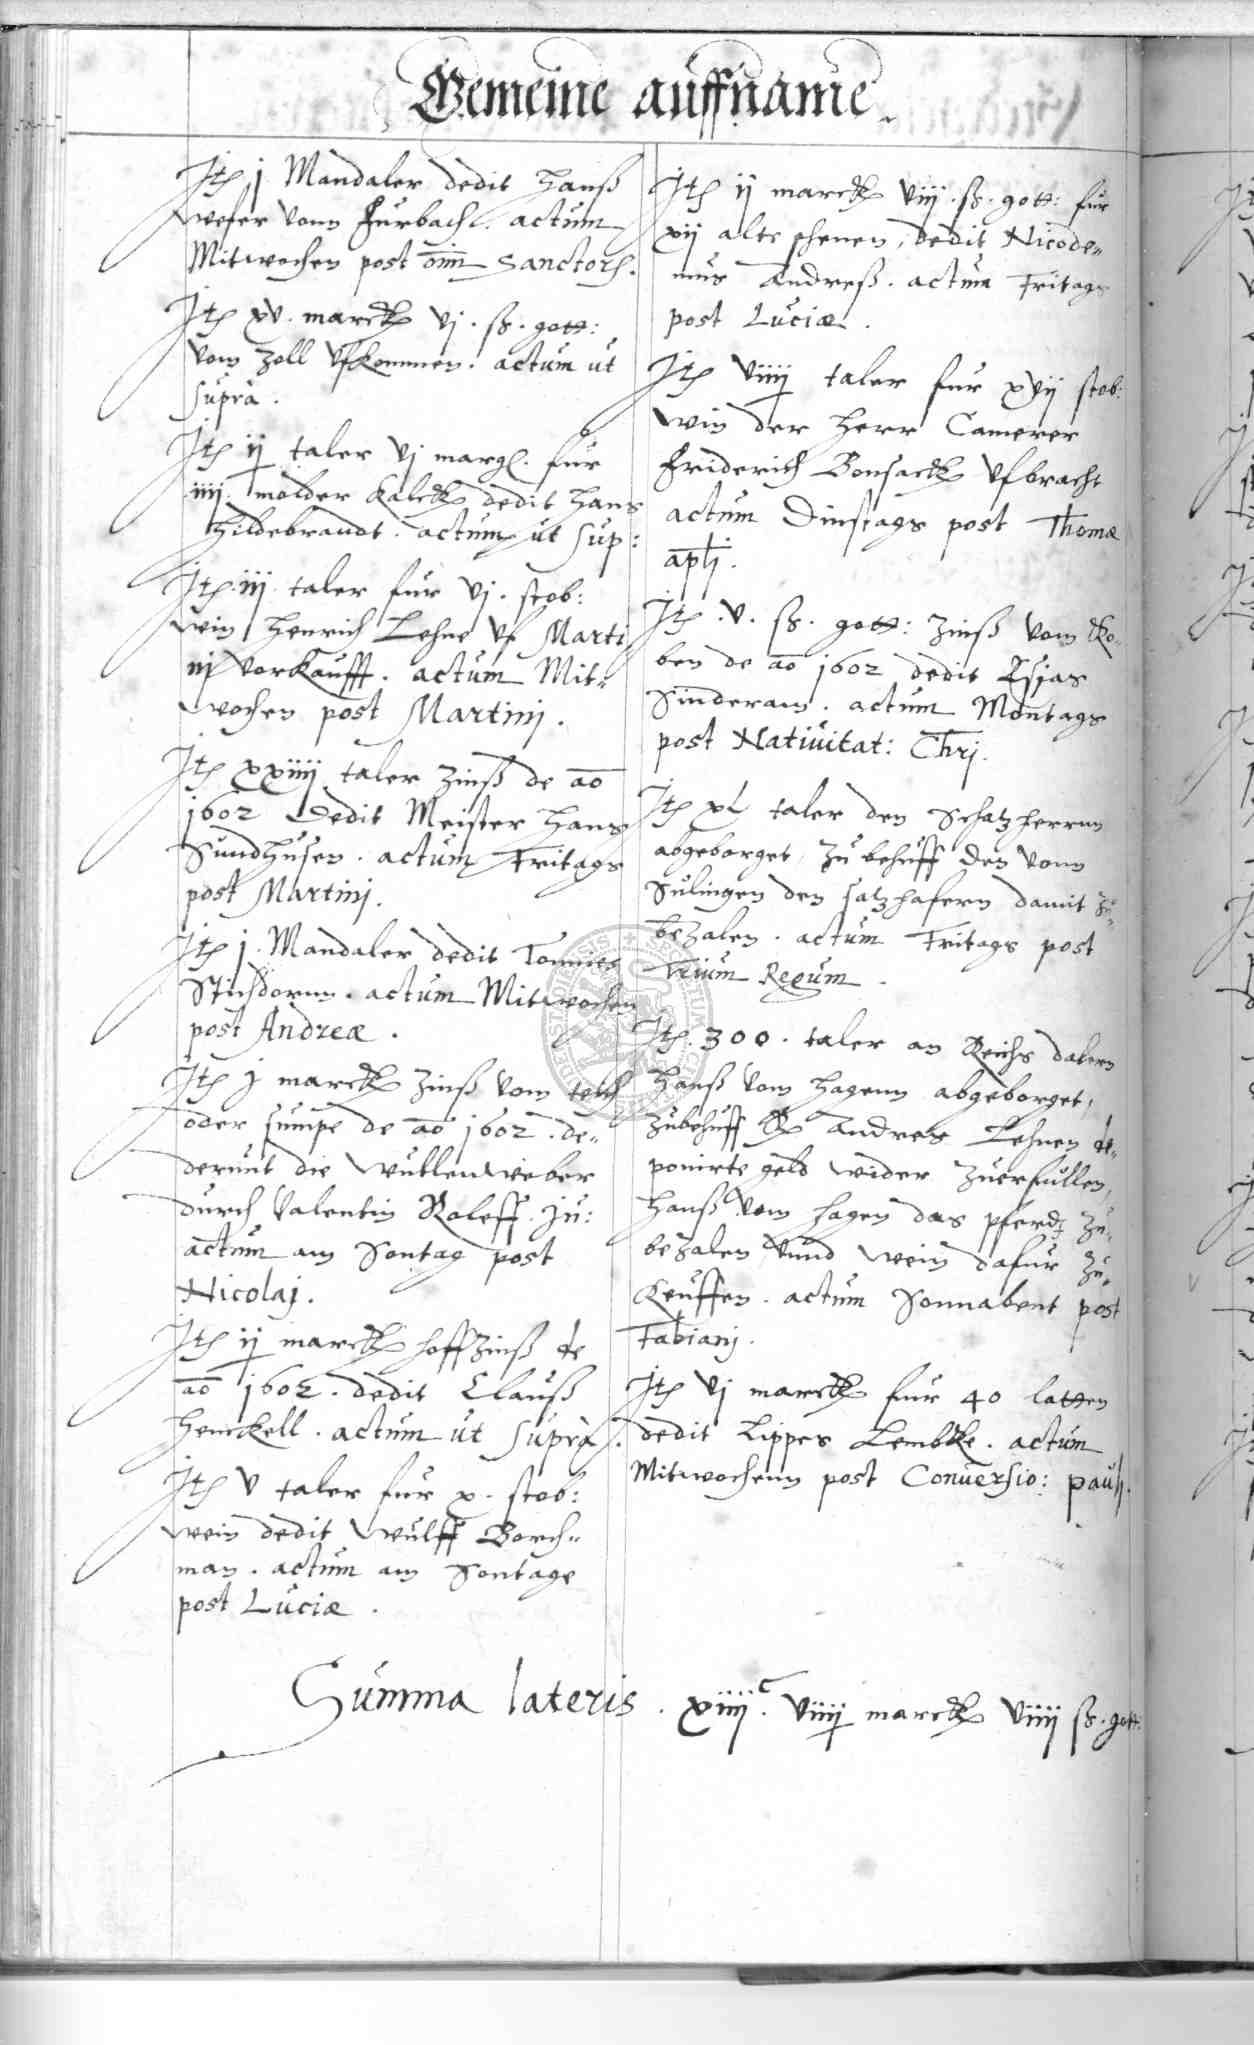 Gemeine auffname
Jtem j Mandaler dedit Hanß
weser vonn Furbach. actum
Mitwochen post omn Sanctorum.
Jtem xv. marck vj. ß. gott:
vom Zoll vfkommen. actum ut
supra.
Jtem ij taler vj marg. fur
iiij. molder kalck dedit Hans
Hildebrandt. actum ut sup:
Jtem iij taler fur vj. stob:
win Henrich Lehne vf Marti
nj vorkaufft. actum Mit-
wochen post Martinj.
Jtem xxiiij taler Zinß de ao
1602 dedit Meister Hans
Sundhusen. actum Fritags
post Martinj.
Jtem j. Mandaler dedit Tonnies
actum Mitwochen
post Andreæ.
Jtem j marck Zinß vom teich
oder sumpe de ao 1602. de-
derunt die wullenweber
durch Valentin Roleff. ju:
actum am Sontag post
Nicolaj.
Jtem ij marck hoffZinß de
ao 1602. dedit Clauß
Henckell. actum ut supra.
Jtem v taler fur x. stob:
wein dedit Wulff Borch-
man. actum am Sontage
post Luciæ.
Jtem ij marck viij. ß. gott: fur
xij alte dedit Nicode-
mus Andreß. actum Fritags
post Luciæ.
Jtem viiij taler fur xvij stob:
win der Herr Camerer
Friderich Bonsack vfbracht
actum Dinstags post Thomæ
aplj.
Jtem. v. ß. gott: Zinß vom Ko-
ben de ao 1602 dedit Esjas
Sinderam. actum Montags
post Nativitat: Chrj.
Jtem xl taler den Schatzherrnn
abgeborget, zu behuff den vonn
Sulingen den satzhafern damit zu-
bezalen. actum Fritags post
Trium Regum.
Jtem. 300. taler an Reichs dalern
Hanß vom Hagenn abgeborget,
zubehuff Andres Lehnen de-
ponirte geld wider zuerfullen,
Hanß vom hagen das pferd zu-
bezalen vnnd wein dafur zu-
keuffen. actum Sonnabent post
Fabianj.
Jtem vj marck fur 40 latten
dedit Lippes Lembke. actum
Mitwochenn post Conversio: paulj.
Summa lateris. xiiij c. viiij marck viiij ß. gott: